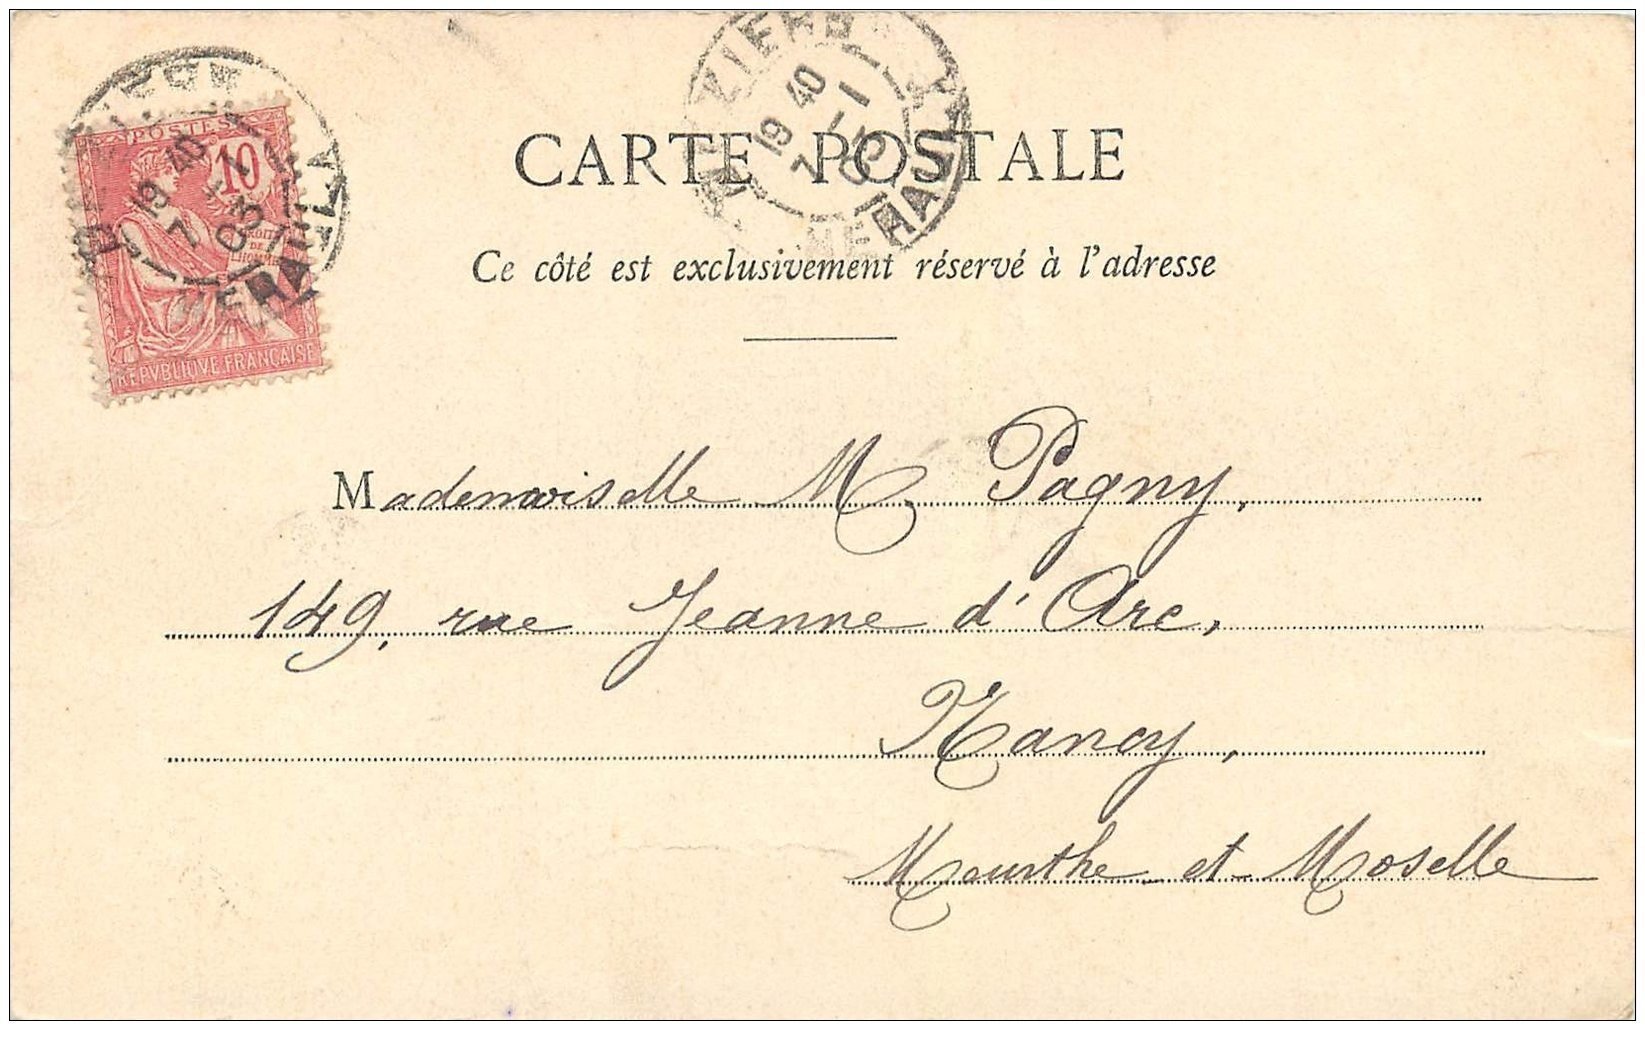 POSTES
10
DROITS
DE
L'HOMME
REPVBLIQVE FRANÇAISE
19 40
7 -1
03
HERAULT
19 40
7 -1
03
HERAULT
CARTE POSTALE
Ce côté est exclusivement réservé à l'adresse
Mademoiselle M Pagny,
149, rue Jeanne d'Arc,
Nancy,
Meurthe et Moselle